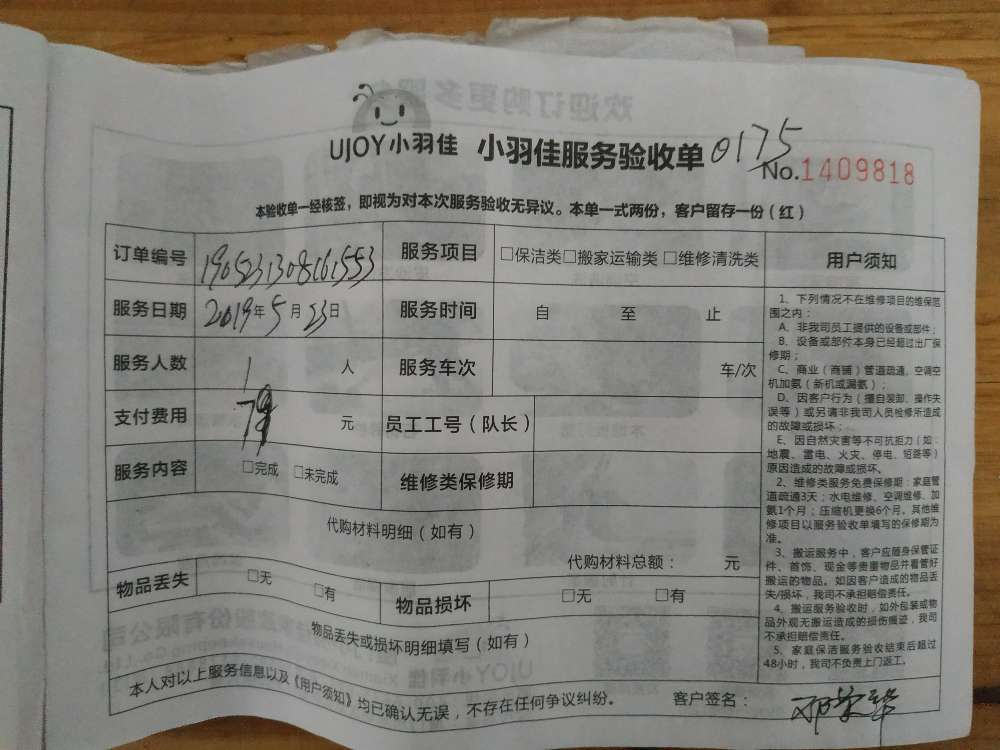 UJOY小羽佳 小羽佳服务验收单 0175
No.1409818
本验收单一经核签，即视为对本次服务验收无异议。本单一式两份，客户留存一份（红）
订单编号 1905231308161553 服务项目 □保洁类□搬家运输类□维修清洗类
服务日期 2019年5月23日 服务时间 自 至 止
服务人数 1 人 服务车次 车/次
支付费用 79 元 员工工号（队长）
服务内容 □完成 □未完成 维修类保修期
代购材料明细（如有）
代购材料总额： 元
物品丢失 □无 □有 物品损坏 □无 □有
物品丢失或损坏明细填写（如有）
用户须知
1、下列情况不在维修项目的维保范
围之内：
A、非我司员工提供的设备或部件；
B、设备或部件本身已经超过出厂保
修期；
C、商业（商铺）管道疏通，空调空
机加氨（新机或漏氨）；
D、因客户行为（擅自装卸、操作失
误等）或另请非我司人员检修所造成
的故障或损坏；
E、因自然灾害等不可抗拒力（如：
地震、雷电、火灾、停电、短路等）
原因造成的故障或损坏。
2、维修类服务免费保修期：家庭管
道疏通3天；水电维修、空调维修、加
氨1个月；压缩机更换6个月。其他维
修项目以服务验收单填写的保修期为
准。
3、搬运服务中，客户应随身保管证
件、首饰、现金等贵重物品并看管好
搬运的物品。如因客户造成的物品丢
失/损坏，我司不承担赔偿责任。
4、搬运服务验收时，如外包装或物
品外观无搬运造成的损伤痕迹，我司
不承担赔偿责任。
5、家庭保洁服务验收结束后超过
48小时，我司不负责上门返工。
本人对以上服务信息以及《用户须知》均已确认无误，不存在任何争议纠纷。 客户签名：